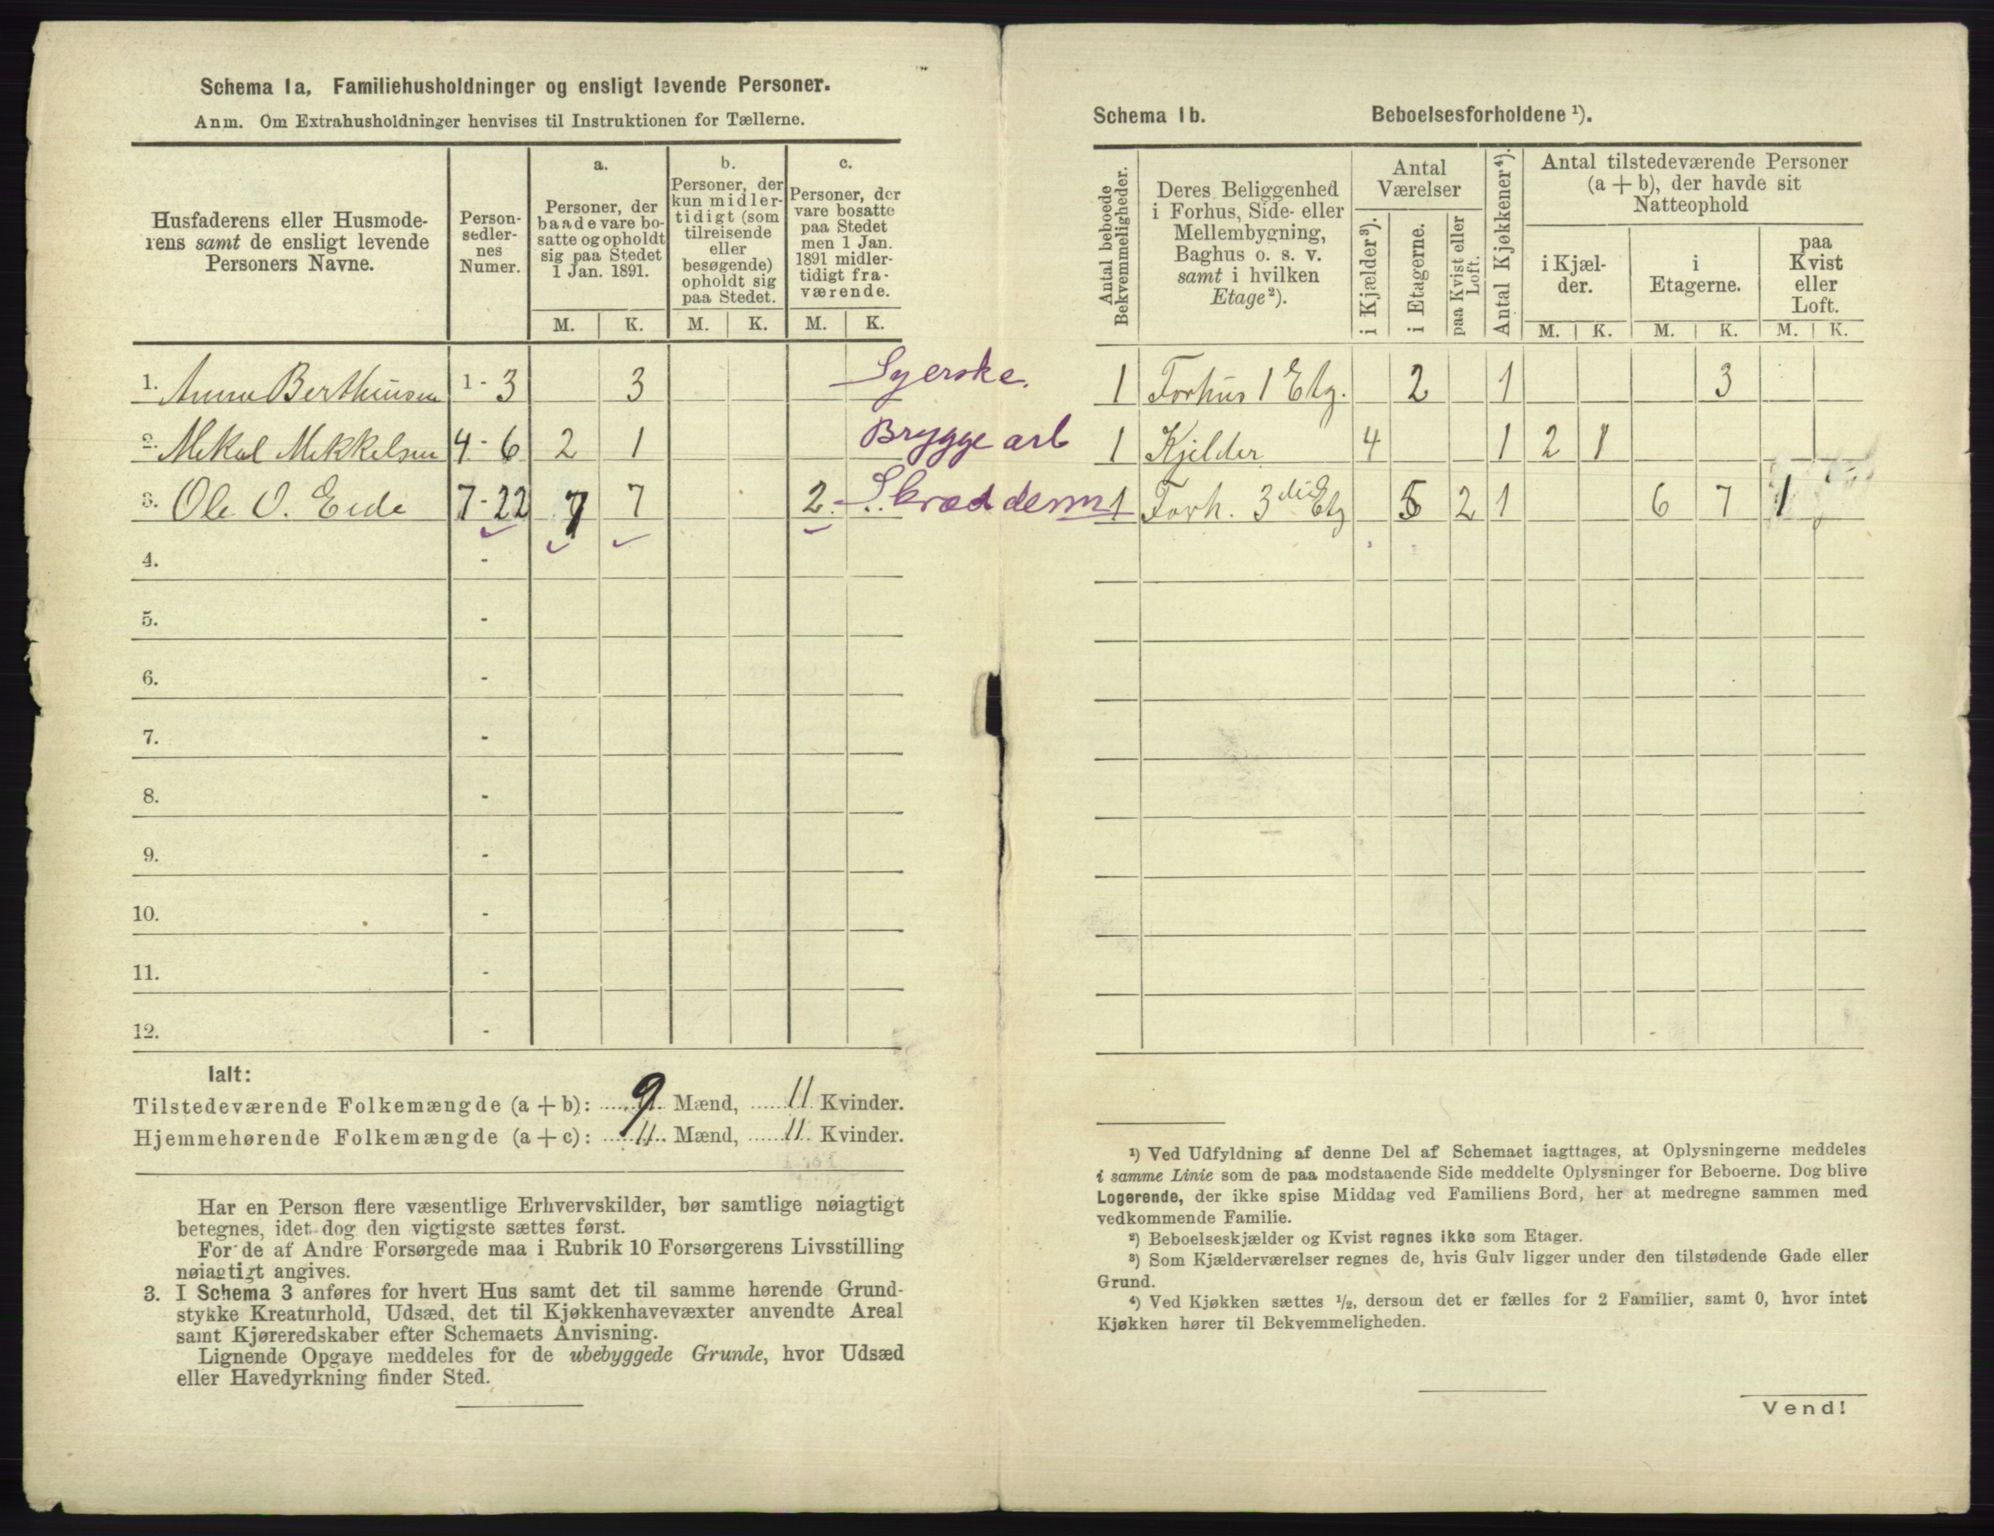 Schema 1a, Familiehusholdninger og ensligt levende Personer.
Anm. Om Extrahusholdninger henvises til Instruktionen for Tællerne.
Husfaderens eller Husmode-
rens samt de ensligt levende
Personers Navne.
Person-
sedler-
nes
Numer.
a.
Personer, der
baade vare bo-
satte og opholdt
sig paa Stedet
1 Jan. 1891.
b.
Personer, der
kun midler-
tidigt (som
tilreisende
eller
besøgende)
opholdt sig
paa Stedet.
c.
Personer, der
vare bosatte
paa Stedet
men 1 Jan.
1891 midler-
tidigt fra-
værende.
M. K. M. K. M. K.
1. Anna Berthinsen 1 - 3 3 Syerske.
2. Mekal Mekkelsen 4 - 6 2 1 Brygge arb
3. Ole O. Eide 7 - 22 7 7 2 Skræddderm
4. -
5. -
6. -
7. -
8. -
9. -
10. -
11. -
12. -
Ialt:
Tilstedeværende Folkemængde (a + b): 9 Mænd, 11 Kvinder.
Hjemmehørende Folkemængde (a + c): 11 Mænd, 11 Kvinder.
Har en Person flere væsentlige Erhvervskilder, bør samtlige nøiagtigt
betegnes, idet dog den vigtigste sættes først.
For de af Andre Forsørgede maa i Rubrik 10 Forsørgerens Livsstilling
nøiagtigt angives.
3. I Schema 3 anføres for hvert Hus samt det til samme hørende Grund-
stykke Kreaturhold, Udsæd, det til Kjøkkenhavevæxter anvendte Areal
samt Kjøreredskaber efter Schemaets Anvisning.
Lignende Opgave meddeles for de ubebyggede Grunde, hvor Udsæd
eller Havedyrkning finder Sted.
Schema 1b. Beboelsesforholdene ¹).
Antal beboede
Bekvemmeligheder.
Deres Beliggenhed
i Forhus, Side- eller
Mellembygning,
Baghus o. s. v.
samt i hvilken
Etage²).
Antal
Værelser
i Kjælder³).
i Etagerne.
paa Kvist eller
Loft.
Antal Kjøkkener⁴).
Antal tilstedeværende Personer
(a + b), der havde sit
Natteophold
i Kjæl-
der.
i
Etagerne.
paa
Kvist
eller
Loft.
M. K. M. K. M. K.
1 Forhus 1 Etg. 2 1 3
1 Kjelder 4 1 2 1
1 Forh. 3die Etg 5 2 1 6 7 1
¹) Ved Udfyldning af denne Del af Schemaet iagttages, at Oplysningerne meddeles
i samme Linie som de paa modstaaende Side meddelte Oplysninger for Beboerne. Dog blive
Logerende, der ikke spise Middag ved Familiens Bord, her at medregne sammen med
vedkommende Familie.
²) Beboelseskjælder og Kvist regnes ikke som Etager.
³) Som Kjælderværelser regnes de, hvis Gulv ligger under den tilstødende Gade eller
Grund.
⁴) Ved Kjøkken sættes ½, dersom det er fælles for 2 Familier, samt 0, hvor intet
Kjøkken hører til Bekvemmeligheden.
Vend!